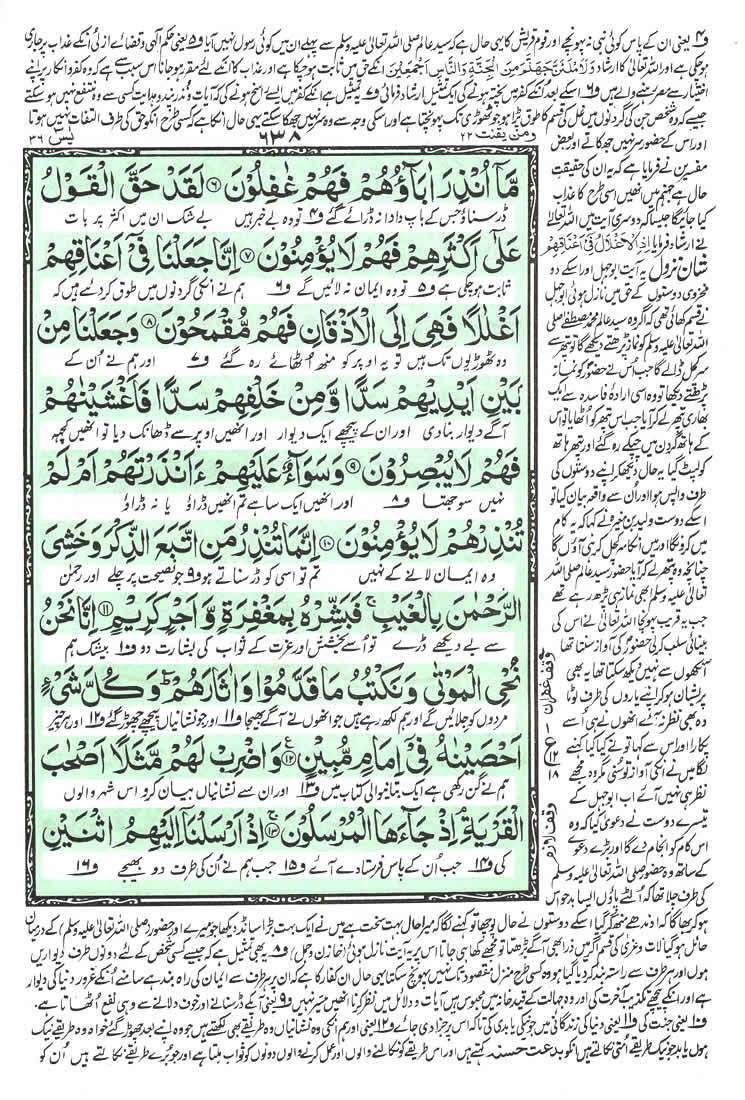 و۴ یعنی ان کے پاس کوئی نبی نہ پہونچے اور قوم قریش کا یہی حال ہے کہ سید عالم صلی اللہ تعالیٰ علیہ وسلم سے پہلے ان میں کوئی رسول نہیں آیا و۵ یعنی حکم الٰہی و قضائے ازلی انکے عذاب پر جاری
ہوچکی ہے اور اللہ تعالیٰ کا ارشاد لَاَمْلَـَٔنَّ جَهَنَّمَ مِنَ الْجِنَّةِ وَالنَّاسِ اَجْمَعِيْنَ انکے حق میں ثابت ہوچکا ہے اور عذاب کا انکے لئے مقرر ہو جانا اس سبب سے ہے کہ وہ کفر و انکار پر اپنے
اختیار سے مصر رہنے والے ہیں و۶ اسکے بعد انکے کفر میں پختہ ہونے کی ایک تمثیل ارشاد فرمائی و۷ یہ تمثیل ہے انکے کفر میں ایسے راسخ ہونے کی کہ آیات و نذر پند و ہدایت کسی سے وہ منتفع نہیں ہوسکتے
جیسے کہ وہ شخص جن کی گردنوں میں غل کی قسم کا طوق پڑا ہو جو ٹھوڑی تک پہونچتا ہے اور اسکی وجہ سے وہ سر نہیں جھکا سکتے یہی حال انکا ہے کہ کسی طرح انکو حق کی طرف التفات نہیں ہوتا
ومن یقنت ۲۲
۶۳۸
یٰس ۳۶
مَّاۤ اُنْذِرَ اٰبَآؤُهُمْ فَهُمْ غٰفِلُوْنَ ۶ لَقَدْ حَقَّ الْقَوْلُ
ڈر سناؤ جس کے باپ دادا نہ ڈرائے گئے و۴ تو وہ بے خبر ہیں بے شک ان میں اکثر پر بات
عَلٰۤى اَكْثَرِهِمْ فَهُمْ لَا يُؤْمِنُوْنَ ۷ اِنَّا جَعَلْنَا فِيْۤ اَعْنَاقِهِمْ
ثابت ہوچکی ہے و۵ تو وہ ایمان نہ لائیں گے و۶ ہم نے انکی گردنوں میں طوق کردیے ہیں کہ
اَغْلٰلًا فَهِيَ اِلَى الْاَذْقَانِ فَهُمْ مُّقْمَحُوْنَ ۸ وَجَعَلْنَا مِنْۢ
وہ ٹھوڑیوں تک ہیں تو یہ اوپر کو منھ اٹھائے رہ گئے و۷ اور ہم نے اُن کے
بَيْنِ اَيْدِيْهِمْ سَدًّا وَّمِنْ خَلْفِهِمْ سَدًّا فَاَغْشَيْنٰهُمْ
آگے دیوار بنادی اور ان کے پیچھے ایک دیوار اور انھیں اوپر سے ڈھانک دیا تو انھیں کچھ
فَهُمْ لَا يُبْصِرُوْنَ ۹ وَسَوَآءٌ عَلَيْهِمْ ءَاَنْذَرْتَهُمْ اَمْ لَمْ
نہیں سوجھتا و۸ اور انھیں ایک سا ہے تم انھیں ڈراؤ یا نہ ڈراؤ
تُنْذِرْهُمْ لَا يُؤْمِنُوْنَ ۱۰ اِنَّمَا تُنْذِرُ مَنِ اتَّبَعَ الذِّكْرَ وَخَشِيَ
وہ ایمان لانے کے نہیں تم تو اسی کو ڈر سناتے ہو و۹ جو نصیحت پر چلے اور رحمٰن
الرَّحْمٰنَ بِالْغَيْبِ ۚ فَبَشِّرْهُ بِمَغْفِرَةٍ وَّاَجْرٍ كَرِيْمٍ ۱۱ اِنَّا نَحْنُ
سے بے دیکھے ڈرے تو اُسے بخشش اور عزت کے ثواب کی بشارت دو و۱۰ بیشک ہم
نُحْيِ الْمَوْتٰى وَنَكْتُبُ مَا قَدَّمُوْا وَاٰثَارَهُمْ ؕ وَكُلَّ شَيْءٍ
مردوں کو جلائیں گے اور ہم لکھ رہے ہیں جو انھوں نے آگے بھیجا و۱۱ اور جو نشانیاں پیچھے چھوڑ گئے و۱۲ اور ہر چیز
اَحْصَيْنٰهُ فِيْۤ اِمَامٍ مُّبِيْنٍ ۱۲ وَاضْرِبْ لَهُمْ مَّثَلًا اَصْحٰبَ
ہم نے گن رکھی ہے ایک بتانے والی کتاب میں و۱۳ اور ان سے نشانیاں بیان کرو اس شہر والوں
الْقَرْيَةِ ۘ اِذْ جَآءَهَا الْمُرْسَلُوْنَ ۱۳ اِذْ اَرْسَلْنَاۤ اِلَيْهِمُ اثْنَيْنِ
کی و۱۴ جب اُن کے پاس فرستادے آئے و۱۵ جب ہم نے اُن کی طرف دو بھیجے و۱۶
وقف غفران
ع
۱۲
۱۸
وقف لازم
اور اس کے حضور سر نہیں جھکاتے اور بعض
مفسرین نے فرمایا ہے کہ یہ ان کی حقیقت
حال ہے جہنم میں انھیں اسی طرح کا عذاب
کیا جائیگا جیسا کہ دوسری آیت میں اللہ تعالیٰ
نے ارشاد فرمایا اِذِ الْاَغْلٰلُ فِيْۤ اَعْنَاقِهِمْ
شان نزول یہ آیت ابوجہل اور اسکے دو
مخزومی دوستوں کے حق میں نازل ہوئی ابوجہل
نے قسم کھائی تھی کہ اگر وہ سید عالم محمد مصطفےٰ صلی
اللہ تعالیٰ علیہ وسلم کو نماز پڑھتے دیکھے گا تو پتھر سے
سر کچل ڈالے گا جب اُس نے حضور کو نماز
پڑھتے دیکھا تو وہ اسی ارادۂ فاسدہ سے ایک
بھاری پتھر لے کر آیا جب اس پتھر کو اُٹھایا تو اُس
کے ہاتھ گردن میں چپکے رہ گئے اور پتھر ہاتھ
کو لپٹ گیا یہ حال دیکھ کر اپنے دوستوں کی
طرف واپس ہوا اور اُن سے واقعہ بیان کیا تو
اسکے دوست ولید بن مغیرہ نے کہا کہ یہ کام
میں کرونگا اور میں انکا سر کچل کر ہی آؤں گا
چنانچہ وہ پتھر لے کر آیا حضور سید عالم صلی اللہ
تعالیٰ علیہ وسلم ابھی نماز ہی پڑھ رہے تھے
جب یہ قریب پہونچا اللہ تعالیٰ نے اس کی
بینائی سلب کرلی حضور کی آواز سنتا تھا
آنکھوں سے نہیں دیکھ سکتا تھا یہ بھی
پریشان ہوکر اپنے یاروں کی طرف لوٹا
وہ بھی نظر نہ آئے انھوں نے ہی اُسے
پکارا اور اس سے کہا تونے کیا کیا کہنے
لگا میں نے انکی آواز تو سنی مگر وہ مجھے
نظر ہی نہیں آئے اب ابوجہل کے
تیسرے دوست نے دعویٰ کیا کہ وہ
اس کام کو انجام دے گا اور بڑے دعوے
کے ساتھ وہ حضور صلی اللہ تعالیٰ علیہ وسلم
کی طرف چلا تھا کہ اُلٹے پاؤں ایسا بدحواس
ہوکر بھاگا کہ اوندھے منھ گر گیا اسکے دوستوں نے حال پوچھا تو کہنے لگا کہ میرا حال بہت سخت ہے میں نے ایک بہت بڑا سانڈ دیکھا جو میرے اور حضور (صلی اللہ تعالیٰ علیہ وسلم) کے درمیان
حائل ہوگیا لات و عزیٰ کی قسم اگر میں ذرا بھی آگے بڑھتا تو مجھے کھا ہی جاتا اس پر یہ آیت نازل ہوئی (خازن و جمل) و۸ یہ بھی تمثیل ہے کہ جیسے کسی شخص کے لئے دونوں طرف دیواریں
ہوں اور ہر طرف سے راستہ بند کردیا گیا ہو وہ کسی طرح منزل مقصود تک نہیں پہونچ سکتا یہی حال ان کفار کا ہے کہ ان پر ہر طرف سے ایمان کی راہ بند ہے سامنے اُنکے غرور دنیا کی دیوار
ہے اور انکے پیچھے تکذیب آخرت کی اور وہ جہالت کے قید خانہ میں محبوس ہیں آیات و دلائل میں نظر کرنا انھیں میسر نہیں و۹ یعنی آپ کے ڈر سنانے اور خوف دلانے سے وہی نفع اُٹھاتا ہے۔
و۱۰ یعنی جنت کی و۱۱ یعنی دنیا کی زندگانی میں جو نیکی یا بدی کی تاکہ اس پر جزا دی جائے و۱۲ یعنی اور ہم انکی وہ نشانیاں وہ طریقے بھی لکھتے ہیں جو وہ اپنے بعد چھوڑ گئے خواہ وہ طریقے نیک
ہوں یا بد جو نیک طریقے اُمتی نکالتے ہیں انکو بدعت حسنہ کہتے ہیں اور اس طریقے کو نکالنے والوں اور عمل کرنے والوں دونوں کو ثواب ملتا ہے اور جو بُرے طریقے نکالتے ہیں اُن کو